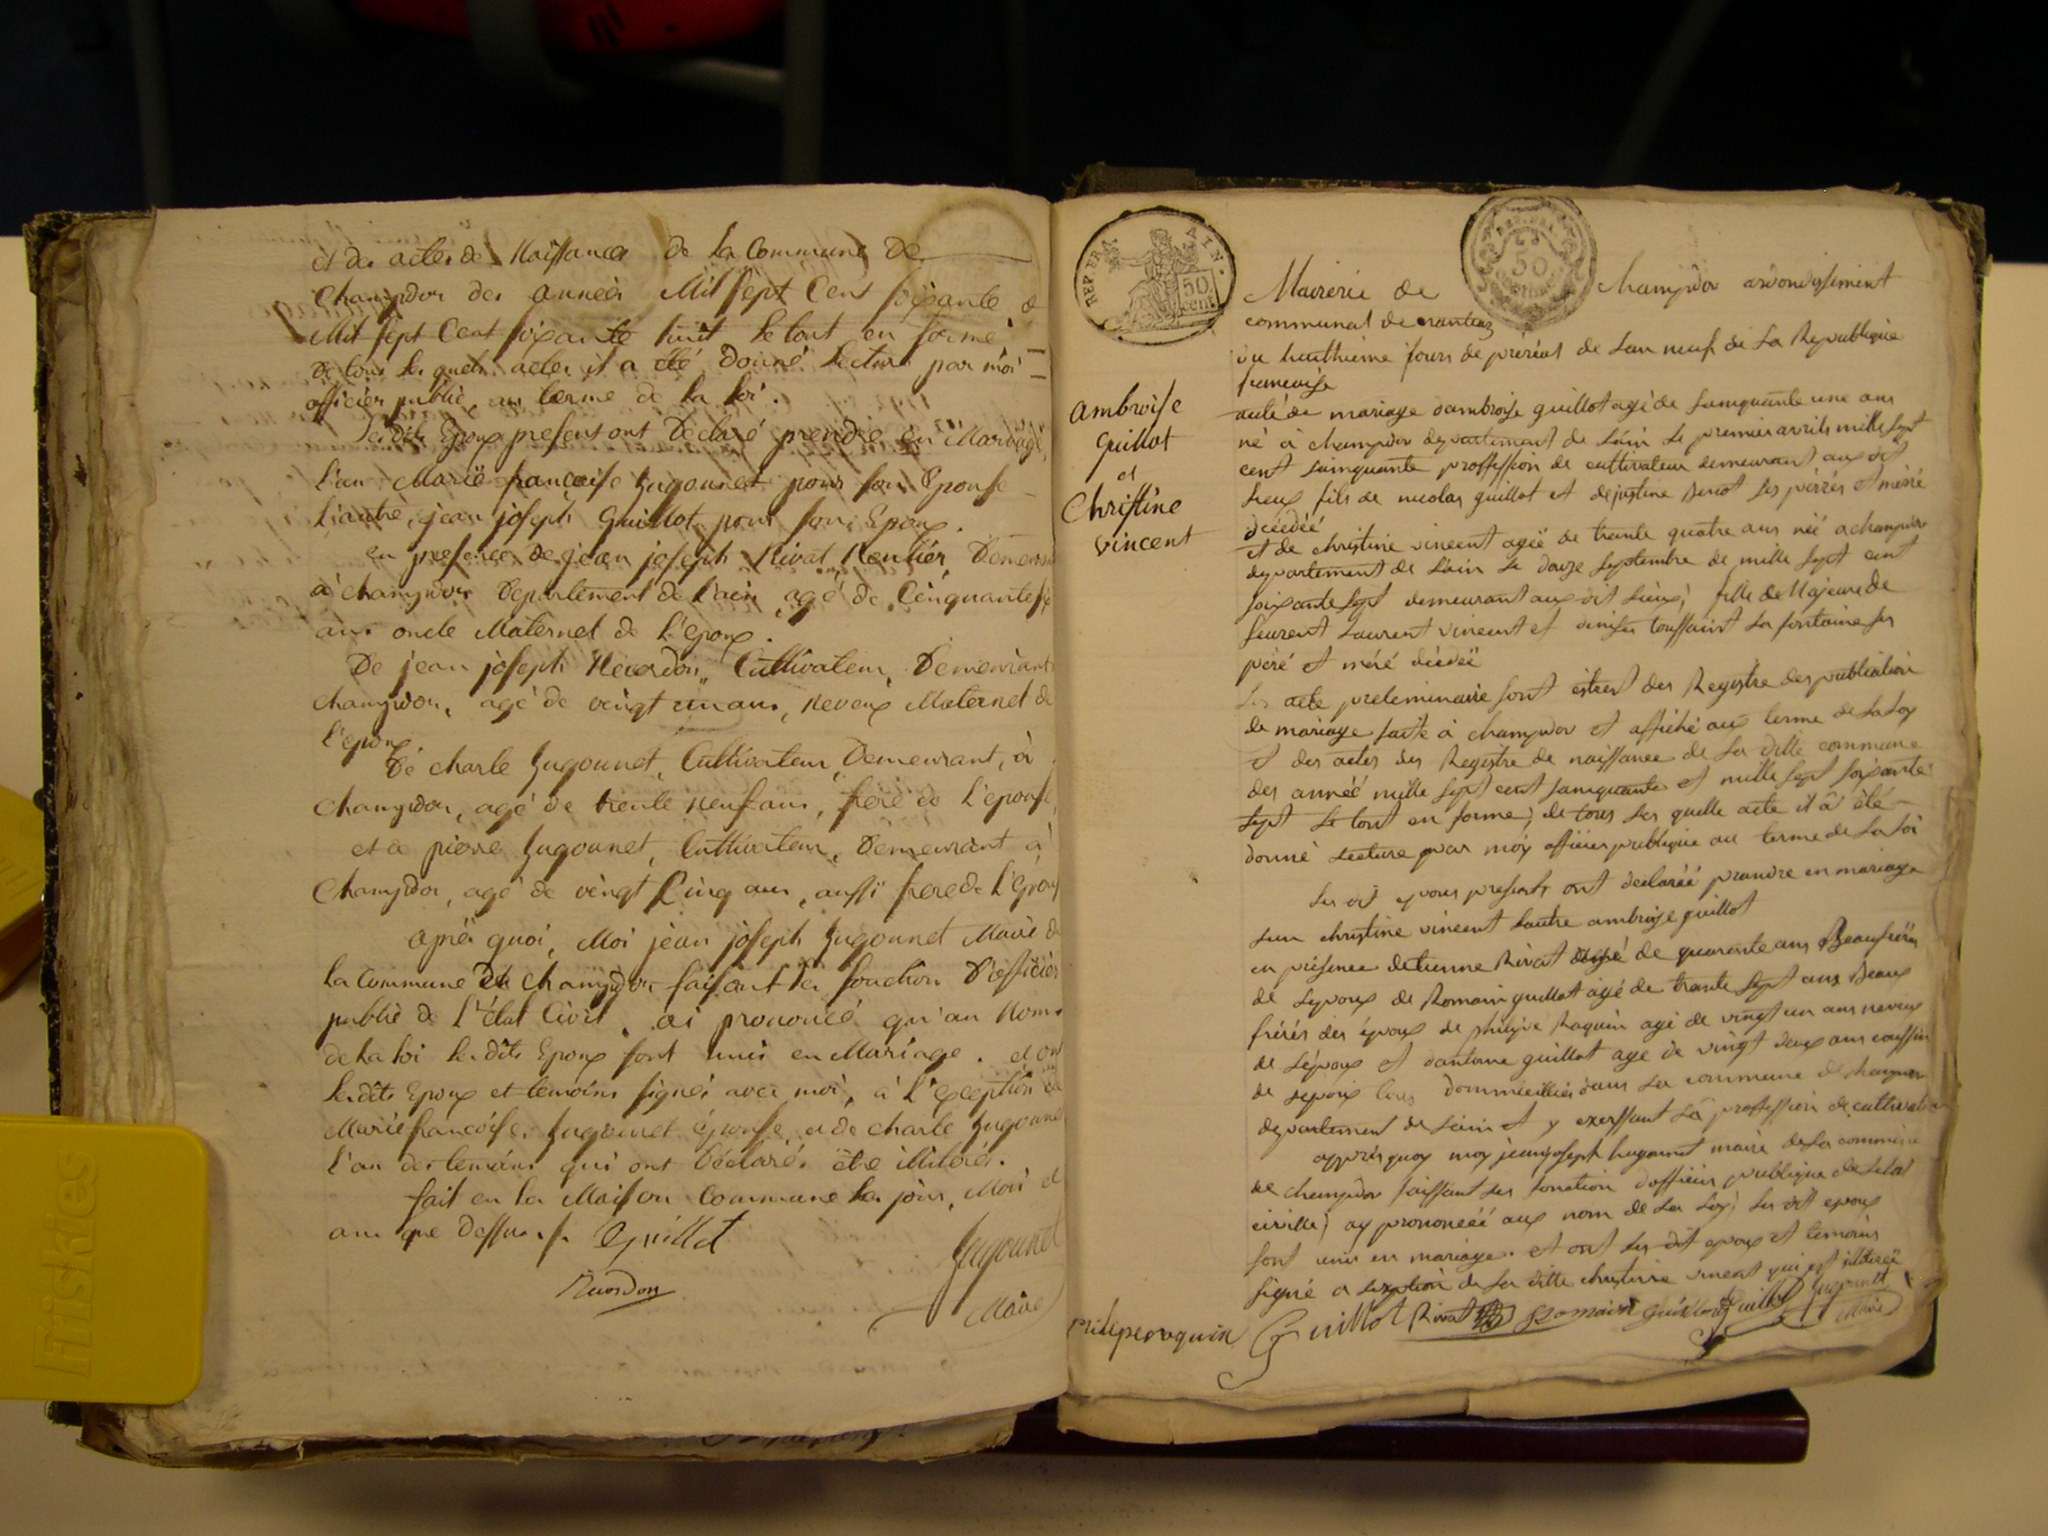 et des actes de Naissance de la Commune De
Champdor des années Mil sept Cent soixante &
Mil sept Cent soixante huit le tout en forme
De tous les quels actes il a été donné lecture par moi
officier public, au terme de la loi.
Lesdits Epoux presens ont Déclaré prendre en Mariage,
l'un Marie françoise hugonnet pour son Epouse
l'autre, jean joseph Guillot pour son Epoux.
en presence De jean joseph Rivat Rentier, Demeurant
à Champdor Departement De l'ain agé de Cinquante
ans oncle Maternel de l'epoux.
De jean joseph Reverdon, Cultivateur, Demeurant
Champdor, agé de vingt un ans, Neveux Maternel de
l'epoux
De charle hugounet, Cultivateur, Demeurant, à
Champdor, agé de trente neuf ans, frere de l'epouse,
et de pierre hugounet, Cultivateur, Demeurant à
Champdor, agé de vingt Cinq ans, aussi frere de l'Epouse
après quoi, Moi jean joseph hugounet Maire de
la Commune De Champdor faisant les fonction D'officier
public de l'état Civil, ai prononcé qu'au Nom
de la loi lesdits Epoux sont unis en Mariage. et ont
lesdits Epoux et temoins signés avec moi, à l'exception de
Marie francoise, hugounet épouse, et de charle hugounet
l'un des temoins qui ont Déclarés être illiterés.
fait en la Maison Commune les jour, Mois et
an que Dessus. Guillot
hugounet
Reverdon
Maire
REP. FRA. AIN.
50 cent
50
Mairerie de Champdor arondissement
communal de nantua
du huithieme jours de prérial de lan neuf de la Republique
francaise
ambroise
guillot
et
Christine
vincent
acte de mariage dambroise guillot agé de sainquante une ans
né à champdor departement de lain le premier avrils mille sept
cent sainquante proffession de cultivateur demeurant aux dit
lieux fils de nicolas guillot et de justine Benot ses pérrés et mérré
décédéé
et de christine vincent agéé de trante quatre ans néé a champdor
departement de lain le douze septembre de mille sept cent
soixante sept demeurant aux dit lieux, fille de Majeure de
feurent Laurent vincent et denise toussaint la fontaine ses
péré et méré décédéé
les acte preleminaire sont estrest des Registre des publication
de mariage faite à champdor et affiché aux terme de la Loy
et des actes des Registre de naissance de la ditte commune
des annéé mille sept cent sainquante et mille sept soixante
sept le tout en forme; de tous les quelle acte il à été
donné lecture par moy officier publique au terme de la loi
les dit epoux presents ont declaréé prandre en mariage
lun christine vincent lautre ambroise guillot
en présence detienne Rivat agé de quarante ans Beaufréres
de lepoux de Romain guillot agé de trante sept ans Beaux
frérés des époux de philipe Raquin agé de vingt un ans neveux
de lépoux et dantoine guillot age de vingt deux ans coussin
de lepoux tous dommicilliés dans la commune de champdor
departement de lain et y exerssant la proffession de cultivateur
apprés quoy moy jean joseph hugonnet maire de la commune
de champdor faissant les fonction dofficier publique de letat
civille, ay prononcéé aux nom de la Loy, les dit epoux
sont unis en mariage. et ont les dit epoux et temoins
signé a lexption de la ditte christine vincent qui est illiteréé
philipe raquin Guillot Rivat Romain Guillot Guillot hugounet
Maire
friskies